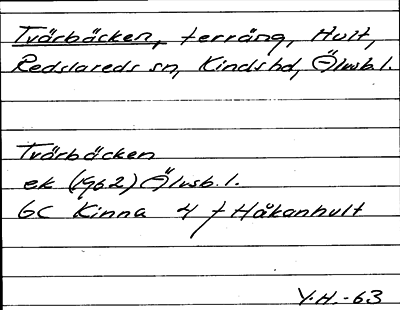 Tvärbäcken, terräng, Hult,
Redslareds sn, Kinds hd, Älvsb. l.
Tvärbäcken
ek (1962) Älvsb. l.
6C Kinna 4 f Håkanhult
Y.H. -63